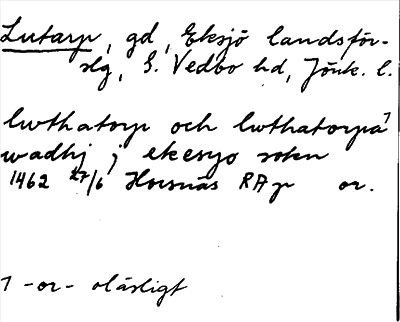 Lutarp, gd, Eksjö landsför-
slg, S. Vedbo hd, Jönk. l.
lwthatorp och lwthatorpa⁷
wadhj j ekesyo sokn
1462 27/6 Horsnäs RAp or.
7 -or- oläsligt